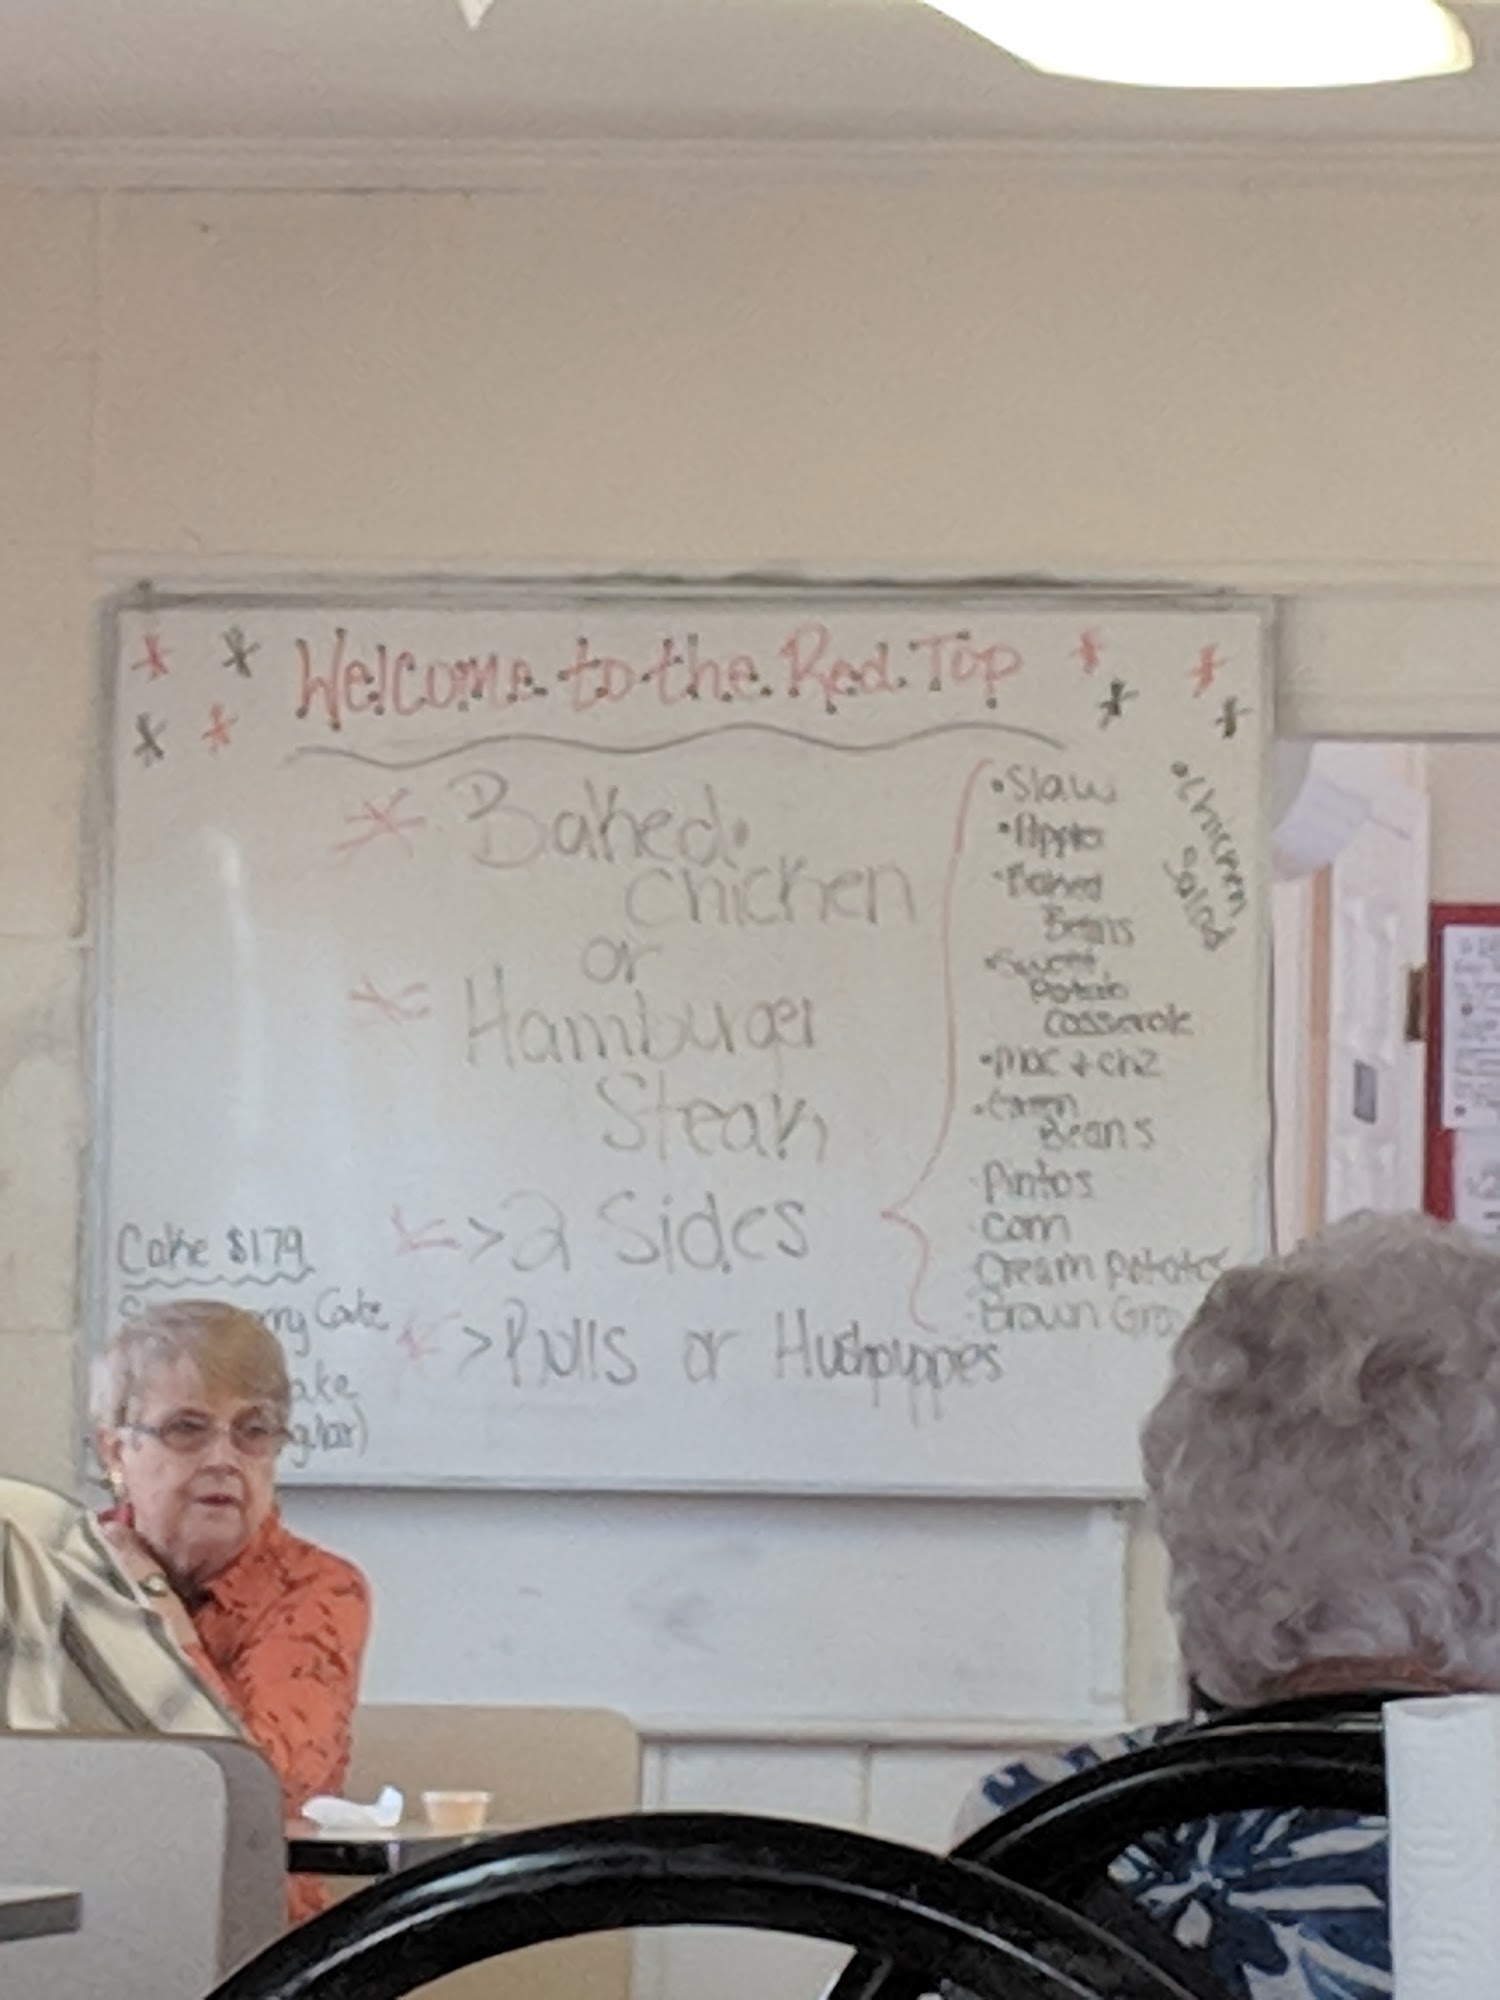 Welcome to the Red Top
Baked
chicken
or
Hamburger
Steak
>2 Sides
>Rolls or Hushpuppies
• Slaw
• Apples
• Baked
Beans
• Sweet
Potato
Casserole
• Mac + chz
• Green
Beans
• Pintos
• Corn
• Cream Potatoes
• Brown
• Chicken
Salad
Cake $1.79
Cake